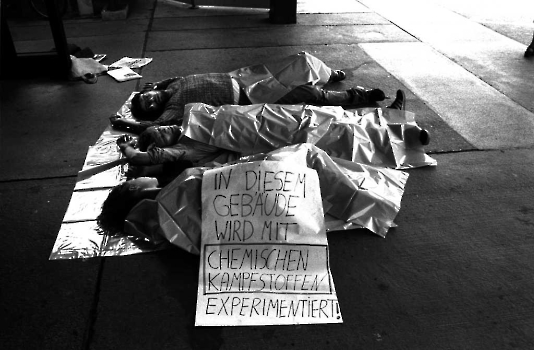 IN DIESEM
GEBÄUDE
WIRD MIT
CHEMISCHEN
KAMPESTOFFEN
EXPERIMENTIERT!